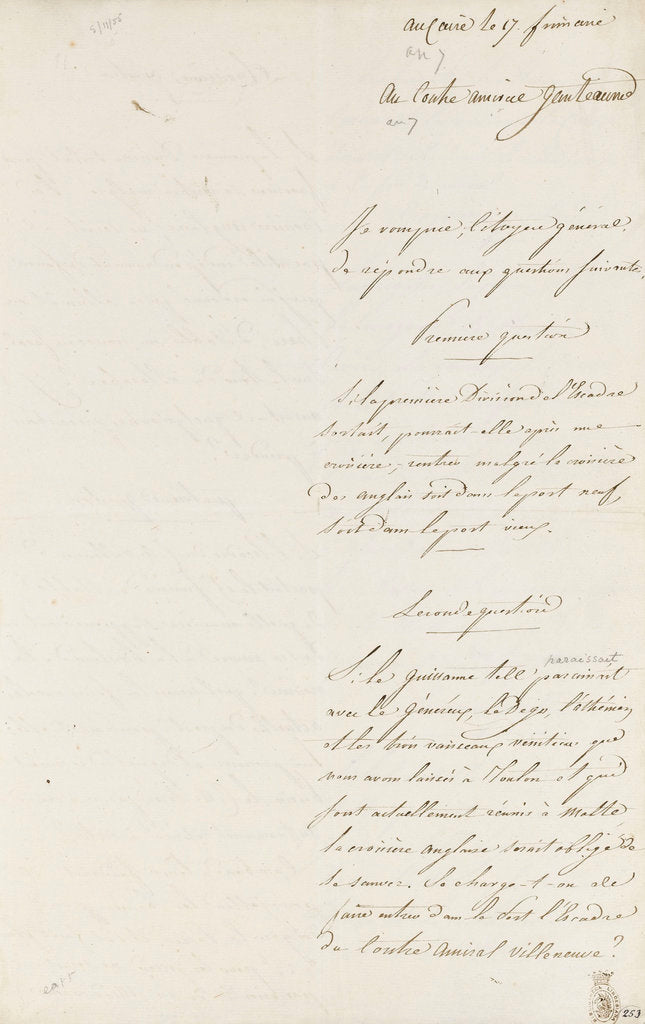 5/11/55
au Caire le 17. frimaire
an 7
au Contre amiral Ganteaume
an 7
Je vous prie, Citoyen général,
de répondre aux questions suivantes,
Première question
Si la première Division de l'Escadre
sortait, pourrait-elle après une
croisière, rentrer malgré la croisière
des anglais soit dans le port neuf,
soit dans le port vieux.
Seconde question
paraissait
Si le Guillaume tell paraissait
avec le Généreux, le Dégo, l'athénien
et les trois vaisseaux vénitiens que
nous avons laissés à Toulon et qui
sont actuellement réunis à Malte,
la croisière anglaise serait obligée de
se sauver. Se charge-t-on de
faire entrer dans le Port l'Escadre
du Contre amiral villeneuve?
253